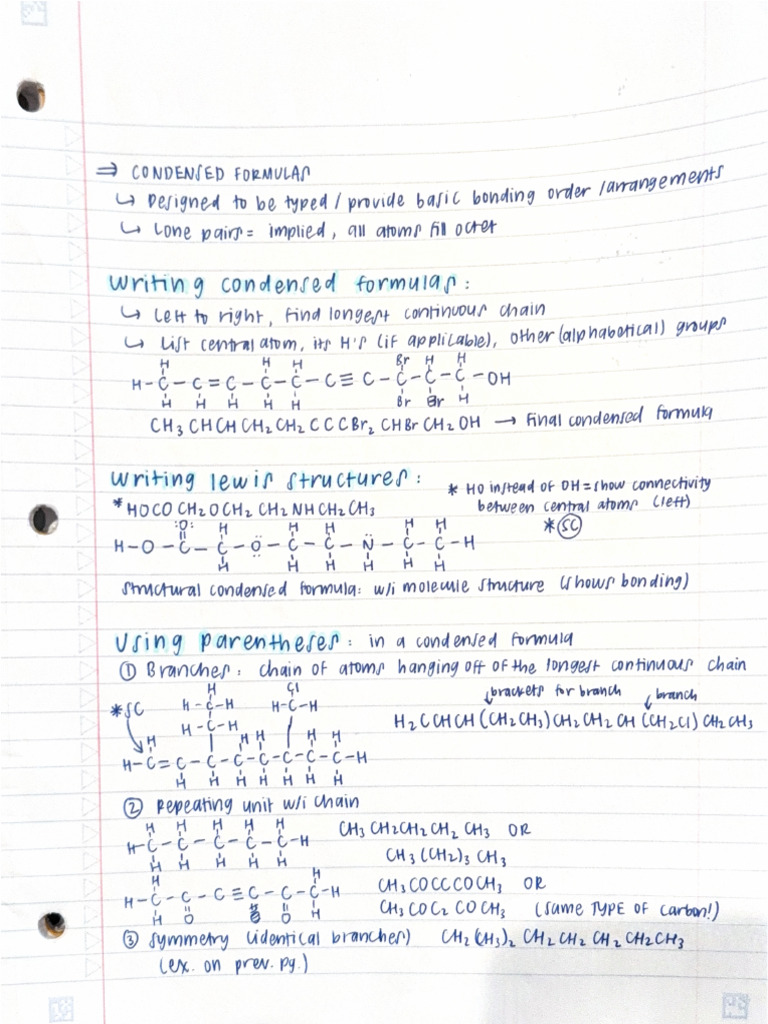 ⇒ CONDENSED FORMULAS
↳ Designed to be typed / provide basic bonding order / arrangements
↳ Lone pairs = implied, all atoms fill octet
Writing condensed formulas:
↳ Left to right, find longest continuous chain
↳ List central atom, its H's (if applicable), other (alphabetical) groups
H H H Br H H
H-C-C=C-C-C-C≡C-C-C-C-OH
H H H H H Br Br H
CH₃CHCHCH₂CH₂CCCBr₂CHBrCH₂OH → Final condensed formula
Writing lewis structures:
* HO instead of OH = show connectivity
between central atoms (left)
* SC
*HOCOCH₂OCH₂CH₂NHCH₂CH₃
:O: H H H H H
H-O-C-C-Ö-C-C-N̈-C-C-H
H H H H H H
Structural condensed formula: w/i molecule structure (shows bonding)
Using parentheses: in a condensed formula
① Branches: chain of atoms hanging off of the longest continuous chain
*SC
H Cl
H-C-H H-C-H
H-C-H
H H H H H
H-C=C-C-C-C-C-C-C-H
H H H H H H
brackets for branch
branch
H₂CCHCH(CH₂CH₃)CH₂CH₂CH(CH₂Cl)CH₂CH₃
② Repeating unit w/i chain
H H H H H
H-C-C-C-C-C-H
H H H H H
CH₃CH₂CH₂CH₂CH₃ OR
CH₃(CH₂)₃CH₃
H H
H-C-C-C≡C-C-C-H
H O O H
CH₃COCCCOCH₃ OR
CH₃COC₂COCH₃ (same TYPE of carbon!)
③ Symmetry (identical branches) CH₂(CH₃)₂CH₂CH₂CH₂CH₂CH₃
(ex. on prev. pg.)